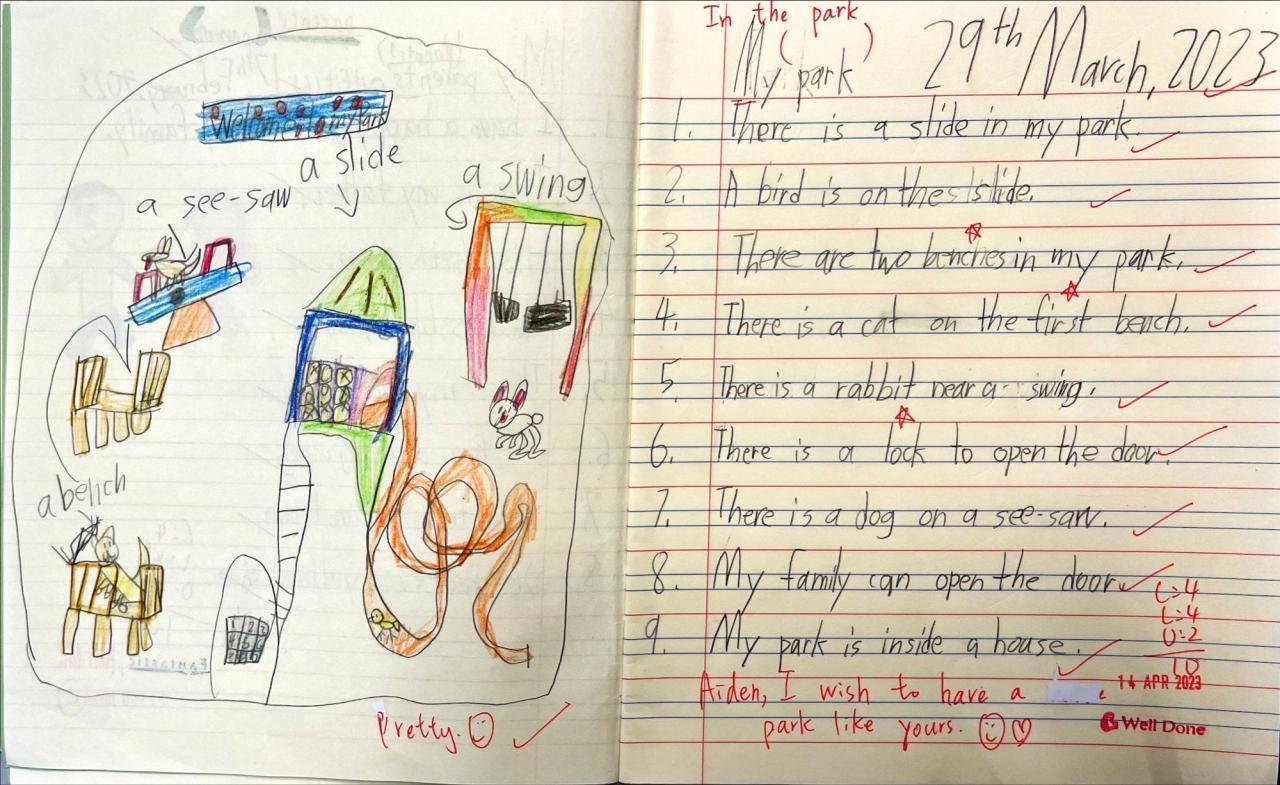 Wellcome to my Park
a slide
a see-saw
a swing
a bench
1 2 3
4 5 6
7 8 9
Pretty.
In the park
( )
My park 29th March, 2023
1. There is a slide in my park.
2. A bird is on the slide.
3. There are two benches in my park.
4. There is a cat on the first bench.
5. There is a rabbit near a swing.
6. There is a lock to open the door.
7. There is a dog on a see-saw.
8. My family can open the door.
9. My park is inside a house.
C:4
L:4
O:2
10
Aiden, I wish to have a
park like yours.
14 APR 2023
Well Done